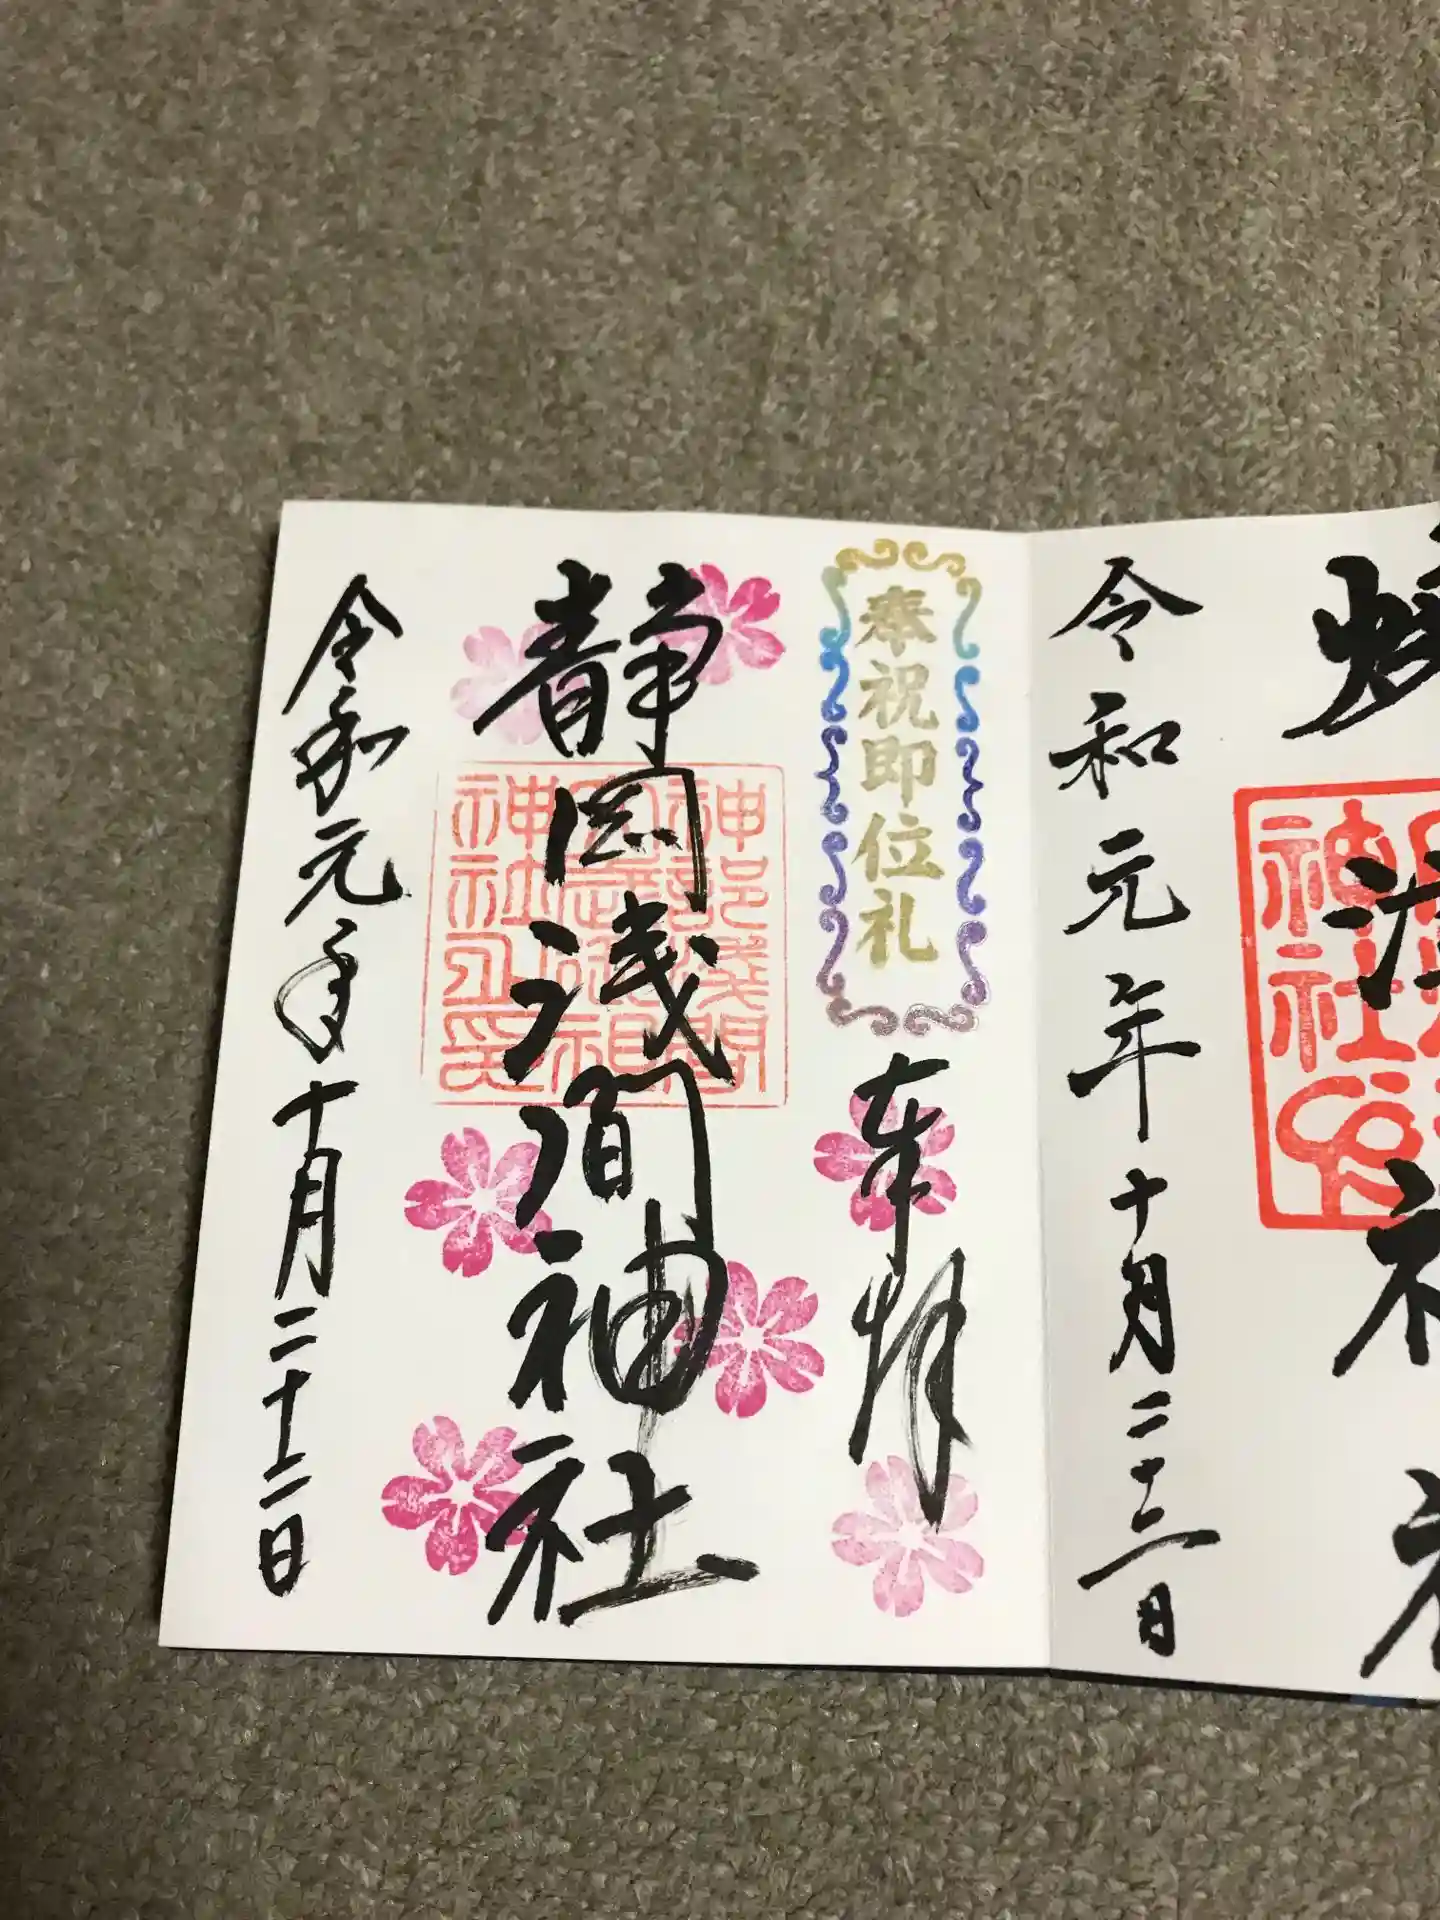 令和元年十月二十二日
奉祝即位礼
奉拝
静岡浅間神社
神部淺間
大歳御祖
神社之印
令和元年十月二十二日